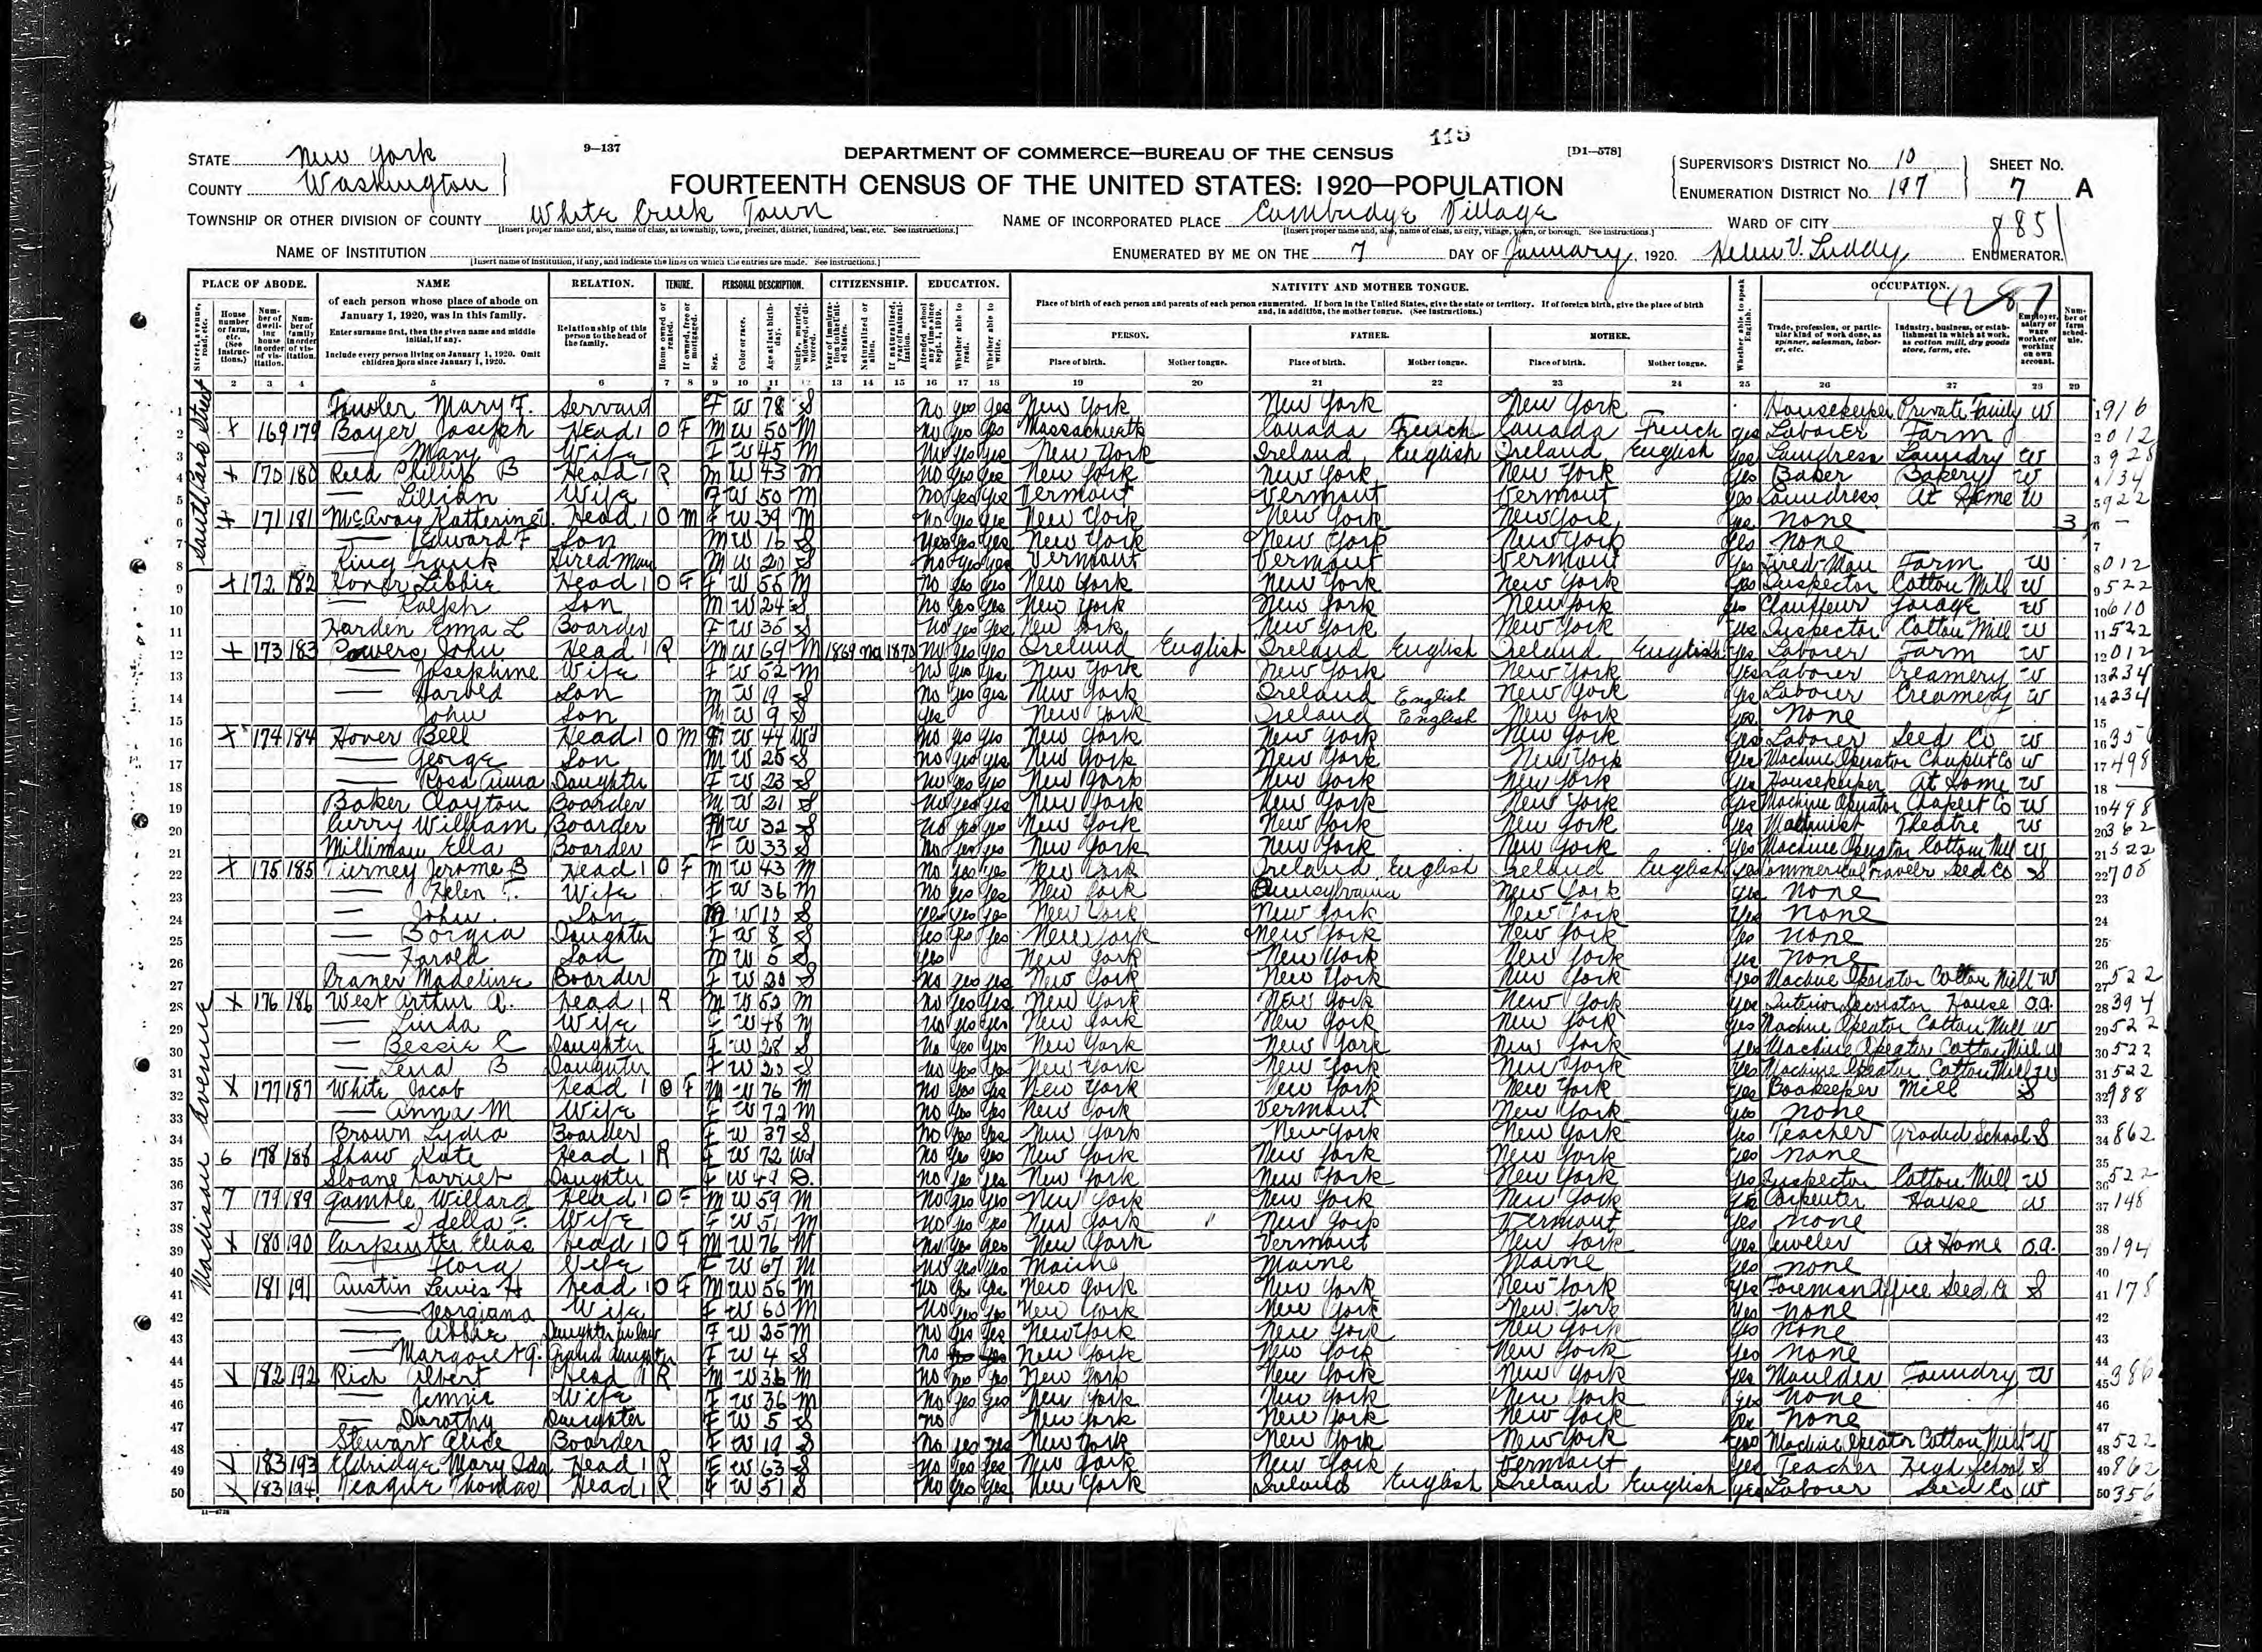 115
STATE New York
9—137
DEPARTMENT OF COMMERCE—BUREAU OF THE CENSUS
[D1—578]
COUNTY Washington
FOURTEENTH CENSUS OF THE UNITED STATES: 1920—POPULATION
SUPERVISOR'S DISTRICT NO. 10
ENUMERATION DISTRICT NO. 197
SHEET NO. 7 A
TOWNSHIP OR OTHER DIVISION OF COUNTY White Creek Town
[Insert proper name and, also, name of class, as township, town, precinct, district, hundred, beat, etc. See instructions.]
NAME OF INCORPORATED PLACE Cambridge Village
[Insert proper name and, also, name of class, as city, village, town, or borough. See instructions.]
WARD OF CITY
885
NAME OF INSTITUTION
[Insert name of institution, if any, and indicate the lines on which the entries are made. See instructions.]
ENUMERATED BY ME ON THE 7 DAY OF January, 1920. Helen V. Luddy ENUMERATOR.
PLACE OF ABODE. NAME RELATION. TENURE. PERSONAL DESCRIPTION. CITIZENSHIP. EDUCATION. NATIVITY AND MOTHER TONGUE. OCCUPATION.
4287
of each person whose place of abode on January 1, 1920, was in this family.
Enter surname first, then the given name and middle initial, if any.
Include every person living on January 1, 1920. Omit children born since January 1, 1920.
Relationship of this person to the head of the family.
Place of birth of each person and parents of each person enumerated. If born in the United States, give the state or territory. If of foreign birth, give the place of birth and, in addition, the mother tongue. (See instructions.)
PERSON. FATHER. MOTHER.
Place of birth. Mother tongue. Place of birth. Mother tongue. Place of birth. Mother tongue.
2 3 4 5 6 7 8 9 10 11 12 13 14 15 16 17 18 19 20 21 22 23 24 25 26 27 28 29
South Park Street
1 Fowler Mary F. Servant F W 78 S No Yes Yes New York New York New York Housekeeper Private Family W 916
2 X 169 179 Boyer Joseph Head 1 O F M W 50 M No Yes Yes Massachusetts Canada French Canada French Yes Laborer Farm 012
3 — Mary Wife F W 45 M No Yes Yes New York Ireland English Ireland English Yes Laundress Laundry W 928
4 X 170 180 Reed Phillip B Head 1 R M W 43 M No Yes Yes New York New York New York Yes Baker Bakery W 134
5 — Lillian Wife F W 50 M No Yes Yes Vermont Vermont Vermont Yes Laundress At Home W 922
6 X 171 181 McAvoy Katherine Head 1 O M F W 39 M No Yes Yes New York New York New York Yes None 3
7 — Edward F Son M W 16 S Yes Yes Yes New York New York New York Yes None
8 King Frank Hired Man M W 20 S No Yes Yes Vermont Vermont Vermont Yes Hired Man Farm W 012
9 X 172 182 Libbie Head 1 O F F W 55 M No Yes Yes New York New York New York Yes Inspector Cotton Mill W 522
10 — Ralph Son M W 24 S No Yes Yes New York New York New York Yes Chauffeur Garage W 610
11 Harden Emma L Boarder F W 35 S No Yes Yes New York New York New York Yes Inspector Cotton Mill W 522
12 X 173 183 Powers John Head 1 R M W 69 M 1869 na 1870 No Yes Yes Ireland English Ireland English Ireland English Yes Laborer Farm W 012
13 — Josephine Wife F W 52 M No Yes Yes New York New York New York Yes Laborer Creamery W 234
14 — Harold Son M W 19 S No Yes Yes New York Ireland English New York Yes Laborer Creamery W 234
15 John Son M W 9 S Yes New York Ireland English New York Yes None
16 X 174 184 Hover Bell Head 1 O M F W 44 Wd No Yes Yes New York New York New York Yes Laborer Seed Co W
17 — George Son M W 25 S No Yes Yes New York New York New York Yes Machine Operator Chaplet Co W 498
18 — Rosa Anna Daughter F W 23 S No Yes Yes New York New York New York Yes Housekeeper At Home W
19 Baker Clayton Boarder M W 21 S No Yes Yes New York New York New York Yes Machine Operator Chaplet Co W 498
20 Curry William Boarder M W 32 S No Yes Yes New York New York New York Yes Theatre W 362
21 Milliman Ella Boarder F W 33 S No Yes Yes New York New York New York Yes Machine Operator Cotton Mill W 522
22 X 175 185 Tierney Jerome B Head 1 O F M W 43 M No Yes Yes New York Ireland English Ireland English Yes Commercial Traveler Seed Co S 708
23 — Helen T. Wife F W 36 M No Yes Yes New York Pennsylvania New York Yes None
24 — John. Son M W S Yes Yes Yes New York New York New York Yes None
25 — Borgia Daughter F W 8 S Yes Yes Yes New York New York New York Yes None
26 — Harold Son M W 5 S Yes New York New York New York Yes None
27 Madeline Boarder F W 20 S No Yes Yes New York New York New York Yes Machine Operator Cotton Mill W 522
Madison Avenue
28 X 176 186 West Arthur A. Head 1 R M W 52 M No Yes Yes New York New York New York Yes Interior Decorator House O.A. 394
29 — Linda Wife F W 48 M No Yes Yes New York New York New York Yes Machine Operator Cotton Mill W 522
30 — Bessie C Daughter F W 28 S No Yes Yes New York New York New York Yes Machine Operator Cotton Mill W 522
31 — Lena B Daughter F W 20 S No Yes Yes New York New York New York Yes Machine Operator Cotton Mill W 522
32 X 177 187 White Jacob Head 1 O F M W 76 M No Yes Yes New York New York New York Yes Bookeeper Mill S 988
33 — Anna M Wife F W 72 M No Yes Yes New York Vermont New York Yes None
34 Brown Lydia Boarder F W 37 S No Yes Yes New York New York New York Yes Teacher Graded School S 862
35 6 178 188 Shaw Kate Head 1 R F W 72 Wd No Yes Yes New York New York New York Yes None
36 Sloane Harriet Daughter F W 49 D. No Yes Yes New York New York New York Yes Inspector Cotton Mill W 522
37 7 179 189 Gamble Willard Head 1 O F M W 59 M No Yes Yes New York New York New York Yes Carpenter House W 148
38 — Idella F. Wife F W 51 M No Yes Yes New York New York Vermont Yes None
39 X 180 190 Carpenter Elias Head 1 O F M W 76 M No Yes Yes New York Vermont New York Yes Jeweler At Home O.A. 194
40 Flora Wife F W 67 M No Yes Yes Maine Maine Maine Yes None
41 181 191 Austin Lewis H Head 1 O F M W 56 M No Yes Yes New York New York New York Yes Foreman Office Seed Co S 178
42 — Georgiana Wife F W 60 M No Yes Yes New York New York New York Yes None
43 — Abbie Daughter in law F W 25 M No Yes Yes New York New York New York Yes None
44 — Margaret G. Grand daughter F W 4 S No New York New York New York Yes None
45 X 182 192 Rich Albert Head 1 R M W 36 M No No Yes New York New York New York Yes Moulder Foundry W 386
46 — Jennie Wife F W 36 M No Yes Yes New York New York New York Yes None
47 — Dorothy Daughter F W 5 S No New York New York New York None
48 Stewart Alice Boarder F W 19 S No Yes Yes New York New York New York Yes Machine Operator Cotton Mill W 522
49 X 183 193 Eldridge Mary Ida Head 1 R F W 63 S No Yes Yes New York New York Vermont Yes Teacher High School S 862
50 X 183 194 Teague Thomas Head 1 R W 51 S No Yes Yes New York Ireland English Ireland English Yes Laborer Seed Co W 356